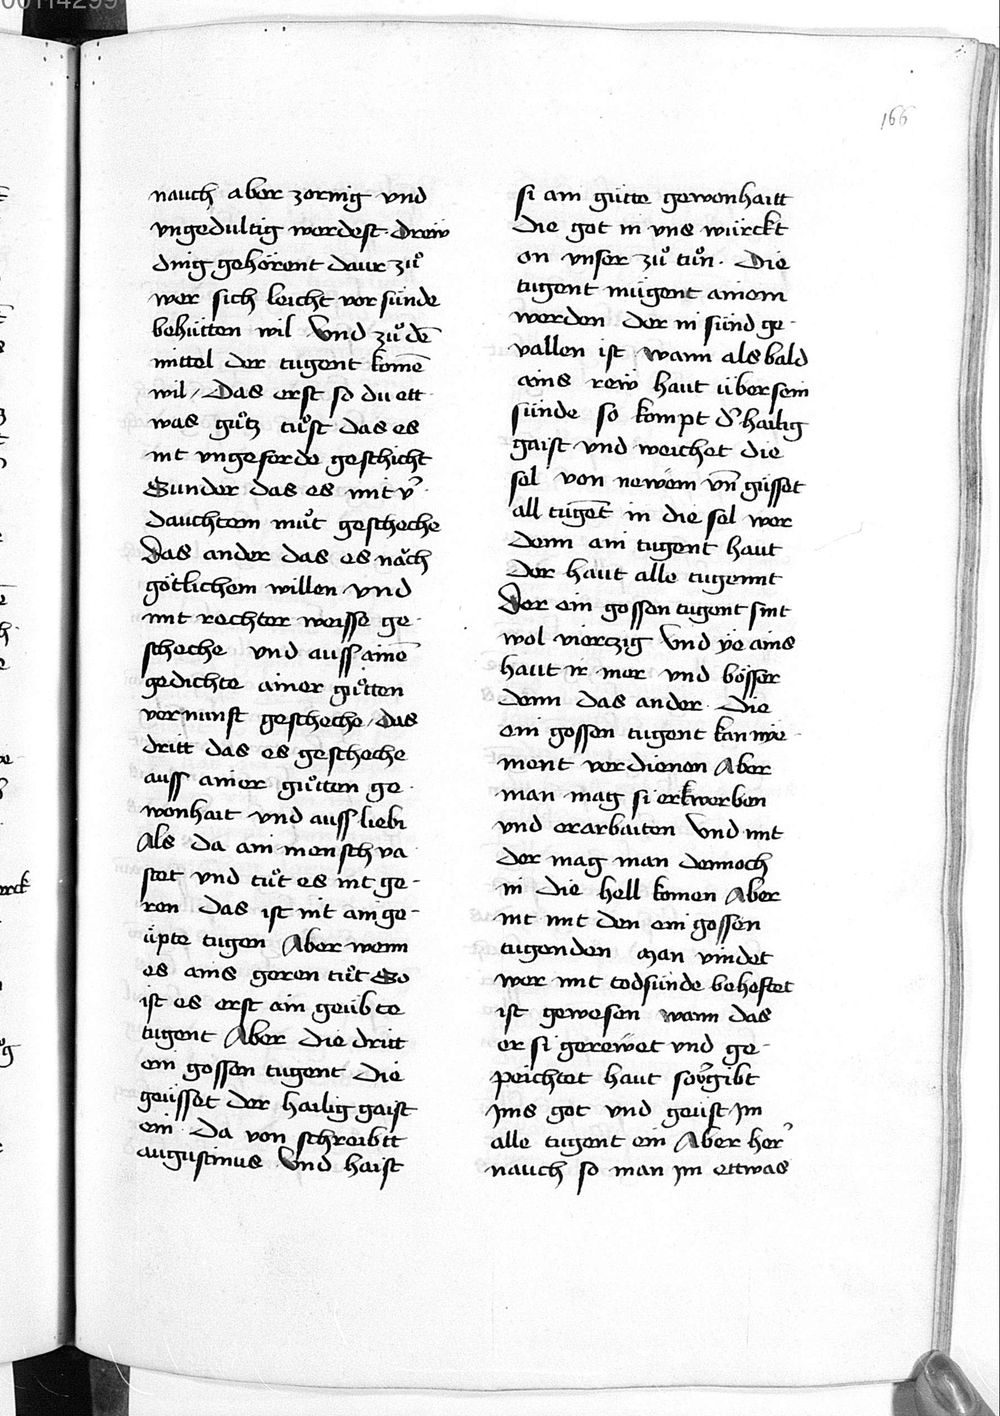 166
nauch aber zornig vnd
vngedultig werdest. Dreiw
ding gehörent daur zuͦ
wer sich leicht vor sünde
behütten wil Vnd zuͦ dē
mittel der tugent komē
wil / Das erst so du ett
was guͦtz tuͦst das es
nit vngeferde geschicht
Sunder das es mit v̓
dauchtem muͦt gescheche
Das ander das es nǎch
götlichem willen vnd
mit rechter weisse ge-
scheche vnd auss ainē
gedichte ainer guͦtten
vernunft gescheche / das
dritt das es gescheche
auss ainer guͦtten ge-
wonhait vnd auss liebi
Als da ain mensch va
stet vnd tuͦt es nit ge-
ren das ist nit ain ge-
üpte tugen Aber wenn
es ains geren tuͦt So
ist es erst ain geübte
tugent Aber die dritt
ein gossen tugent die
geüsset der hailig gaist
ein Da von schreibtt
augustinus Vnd haist
si ain gütte gewonhaitt
die got in vns würckt
on vnser zuͦ tuͦn. Die
tugent mügent ainem
werden der in sünd ge-
vallen ist wann als bald
ains reiw haut über sein
sünde so kompt d̓ hailig
gaist vnd weichet die
sel von newem vn̄ güsset
all tugēt in die sel wer
denn ain tugent haut
der haut alle tugennt
Der ein gossen tugent sint
wol vierczig Vnd ye ains
haut ir mer vnd bösser
denn das ander. Die
ein gossen tugent kan nie-
ment verdienen Aber
man mag si erkwerben
vnd erarbaiten Vnd mit
der mag man dennoch
in die hell komen Aber
nit mit den ein gossen
tugenden man vindet
wer mit todsünde beheftet
ist gewesen wann das
er si gerewet vnd ge-
peichtet haut so v̓gibt
jms got vnd geüst jm
alle tugent ein Aber her̓
nauch so man jm ettwas